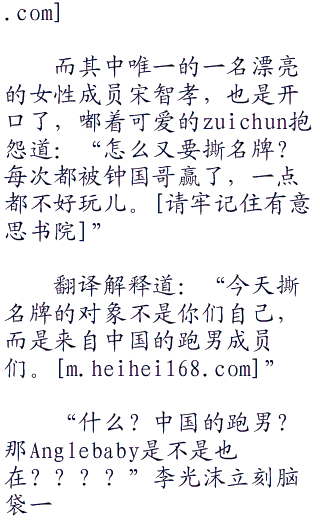 .com]
而其中唯一的一名漂亮
的女性成员宋智孝，也是开
口了，嘟着可爱的zuichun抱
怨道：“怎么又要撕名牌？
每次都被钟国哥赢了，一点
都不好玩儿。[请牢记住有意
思书院]”
翻译解释道：“今天撕
名牌的对象不是你们自己，
而是来自中国的跑男成员
们。[m.heihei168.com]”
“什么？中国的跑男？
那Anglebaby是不是也
在？？？？”李光沫立刻脑
袋一